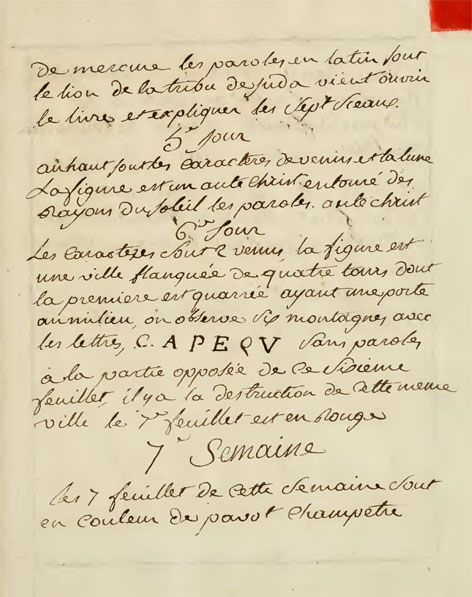 de mercure les paroles en latin sont
le lion de la tribu de juda vient ouvrir
le livre et expliquer les sept sceaux.
5e jour
au haut sont les caractères de venus et la lune
La figure est un ante christ entouré des
Rayons du soleil les paroles. ante christ
6e jour
Les caractères sont 2 venus, la figure est
une ville flanquée de quatre tours dont
la premiere est quarrée ayant une porte
au milieu, on observe six montagnes avec
les lettres, C. A P E Q V sans paroles
à la partie opposée de ce sixieme
feuillet, il y a la destruction de cette meme
ville le 7e feuillet est en Rouge
7e Semaine
les 7 feuillet de cette Semaine sont
en couleur de pavot champetre